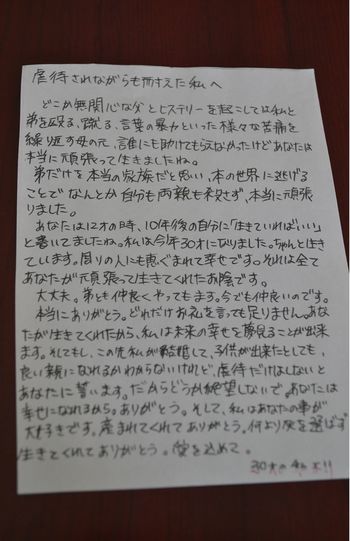 虐待されながらも耐えた私へ
どこか無関心な父とヒステリーを起こしては私と
弟を殴る、蹴る、言葉の暴力といった様々な苦痛を
繰り返す母の元、誰にも助けてもらえなかったけどあなたは
本当に頑張って生きましたね。
弟だけを本当の家族だと思い、本の世界に逃げる
ことでなんとか自分も両親も殺さず、本当に頑張
りました。
あなたは12才の時、10年後の自分に「生きていればいい」
と書いてましたね。私は今年30才になりました。ちゃんと生き
ています。周りの人にも恵まれて幸せです。それは全て
あなたが頑張って生きてくれたお陰です。
大丈夫。弟も仲良くやってます。今でも仲良いのです。
本当にありがとう。どれだけお礼を言っても足りません。あな
たが生きてくれたから、私は未来の幸せを夢見ることが出来
ます。そしてもし、この先私が結婚して、子供が出来たとしても、
良い親になれるかわからないけれど、虐待だけはしないと
あなたに誓います。だからどうか絶望しないで。あなたは
幸せになれるから。ありがとう。そして、私はあなたの事が
大好きです。産まれてくれてありがとう。何より死を選ばず
生きてくれてありがとう。愛を込めて。
30才の私より